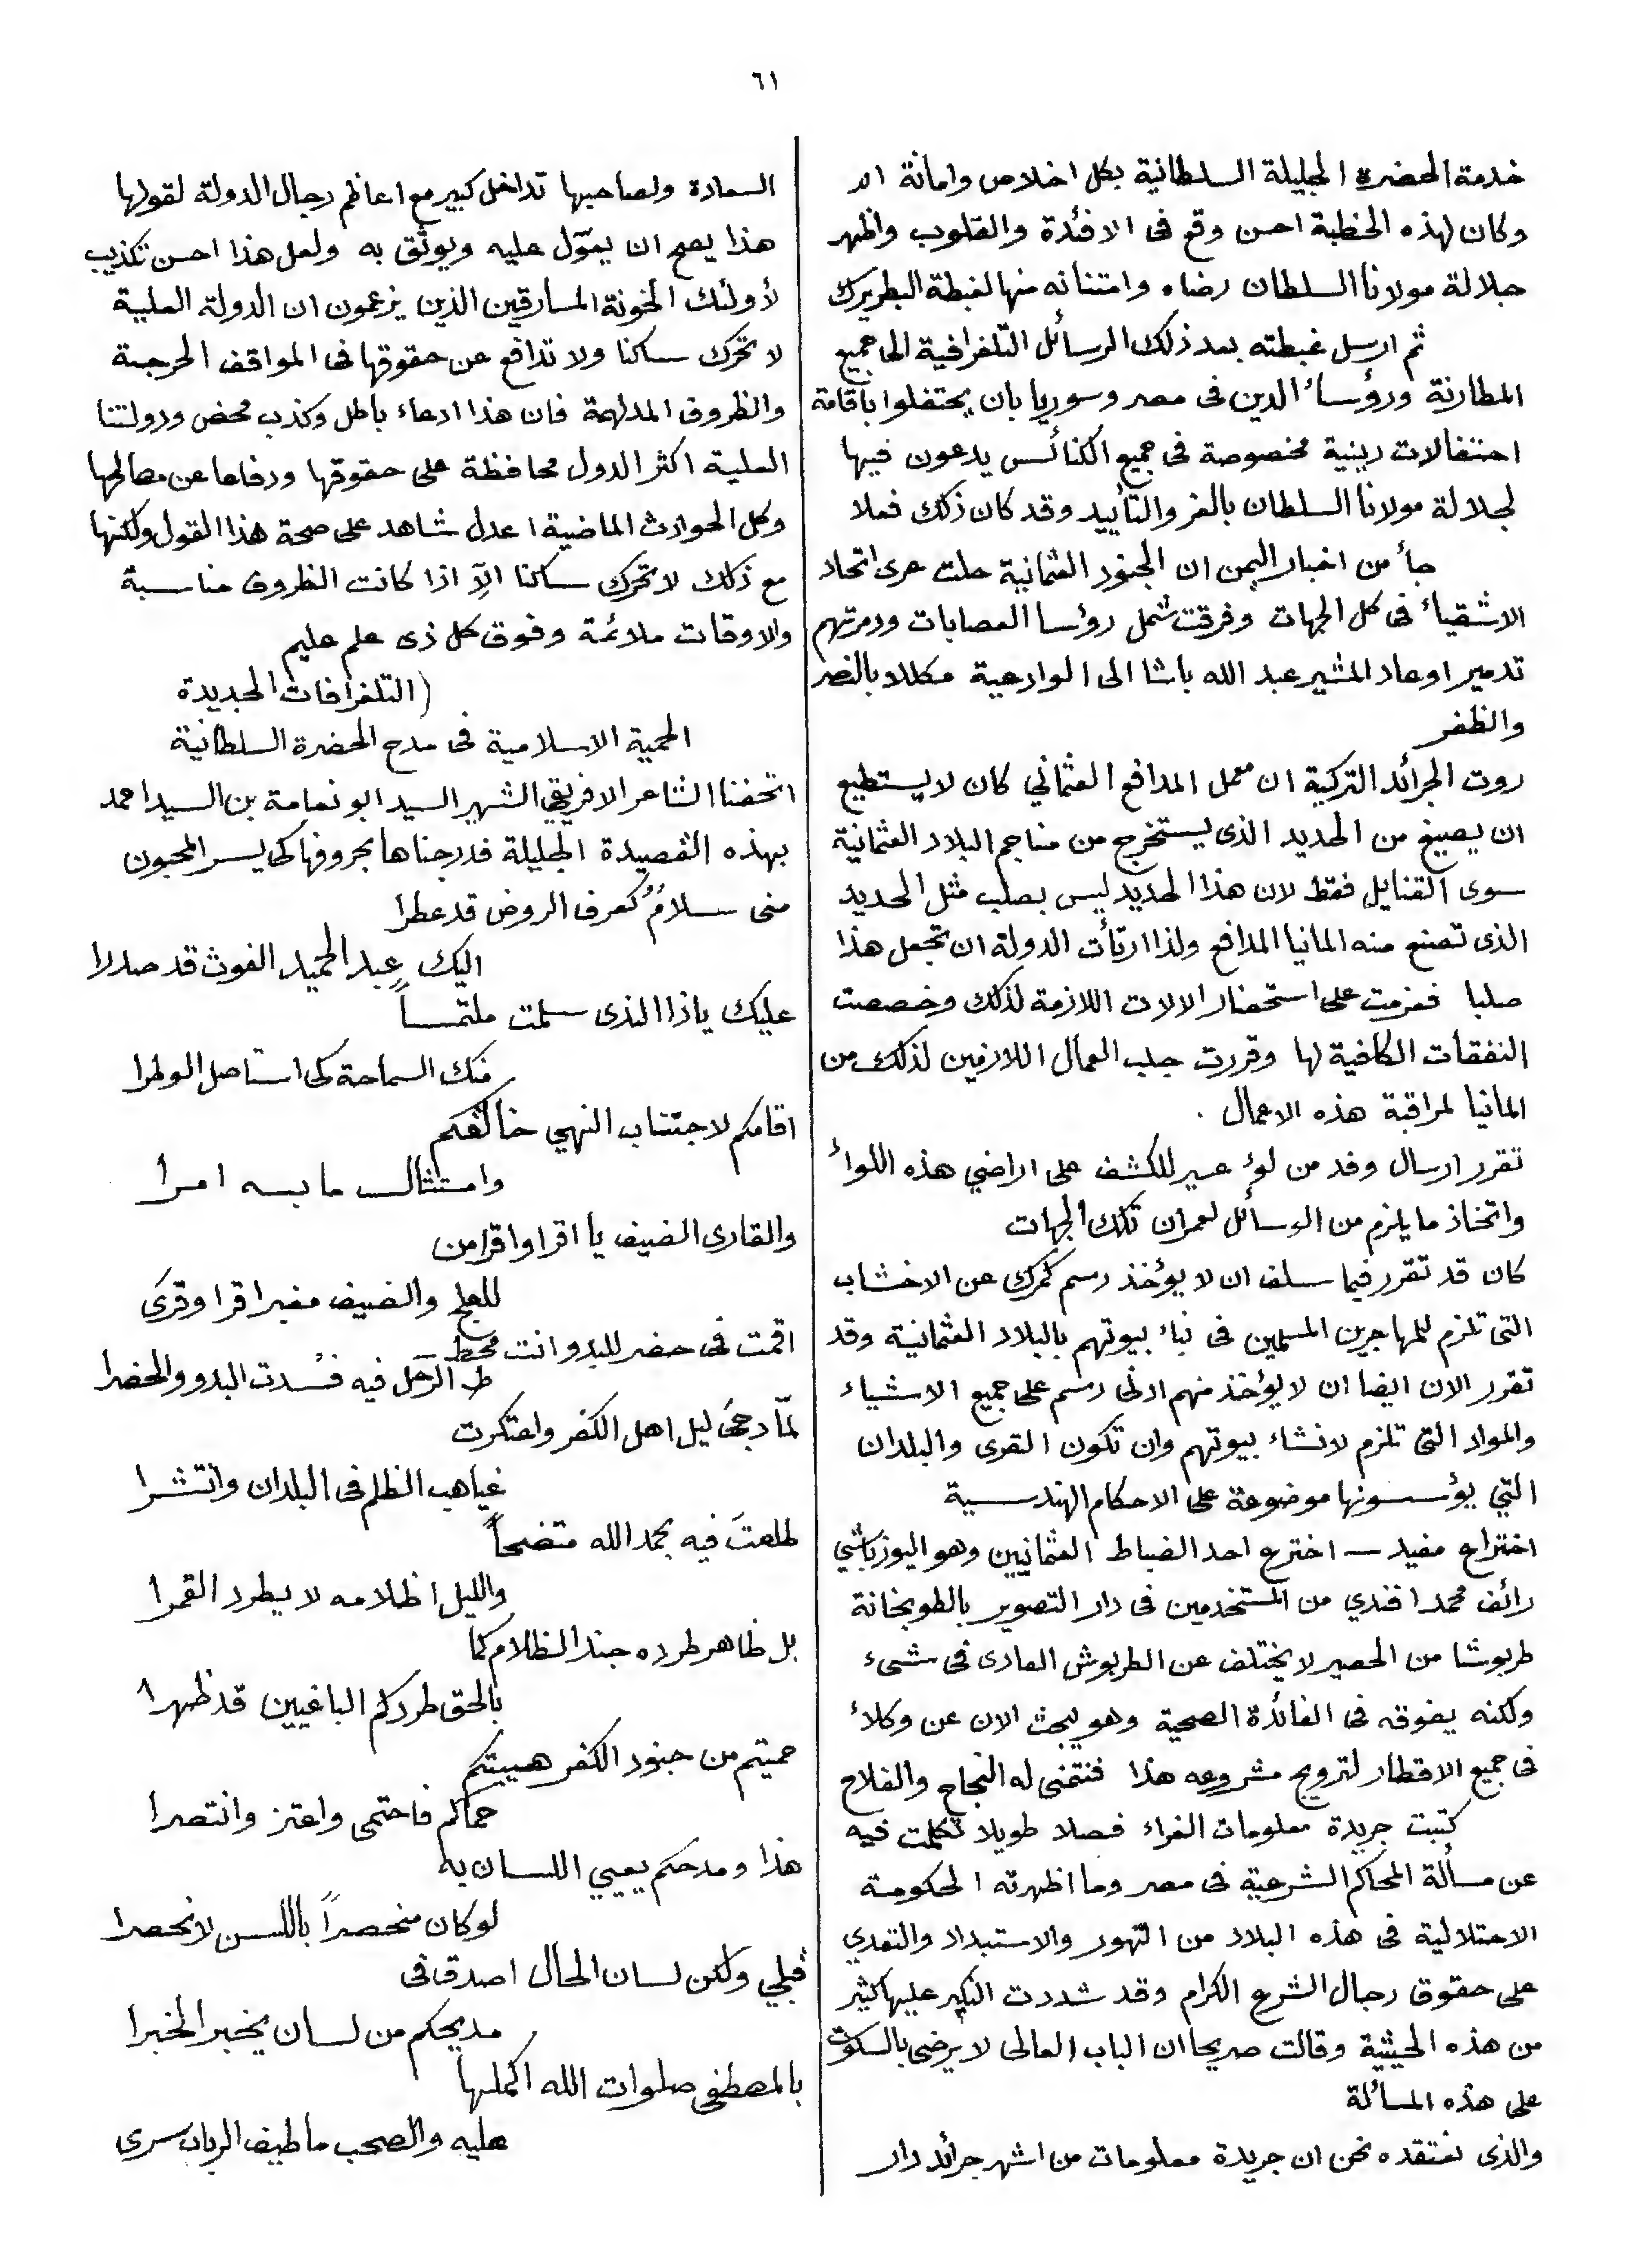 ٦١
خدمة الحضرة الجليلة السلطانية بكل اخلاص وامانة الد
وكان لهذه الخطبة احسن وقع فى الافئدة والقلوب واظهر
جلالة مولانا السلطان رضاه وامتنانه منها لغبطة البطريرك
ثم ارسل غبطته بعد ذلك الرسائل التلغرافية الى جميع
المطارنة ورؤساء الدين فى مصر وسوريا بان يحتفلوا باقامة
احتفالات دينية مخصوصة فى جميع الكنائس يدعون فيها
لجلالة مولانا السلطان بالعز والتأييد وقد كان ذلك فعلا
جأ من اخبار اليمن ان الجنود العثمانية حلت عرى اتحاد
الاشقياء فى كل الجهات وفرقت شمل رؤسا العصابات ودمرتهم
تدميرا وعاد المشير عبد الله باشا الى الوادعية مكللا بالنصر
والظفر
روت الجرائد التركية ان معمل المدافع العثماني كان لا يستطيع
ان يصيغ من الحديد الذى يستخرج من مناجم البلاد العثمانية
سوى القنابل فقط لان هذا الحديد ليس بصلب مثل الحديد
الذى تصنع منه المانيا المدافع ولذا ارتأت الدولة ان تجعل هذا
صلبا فعزمت على استحضار الالات اللازمة لذلك وخصصت
النفقات الكافية لها وقررت جلب العمال اللازمين لذلك من
المانيا لمراقبة هذه الاعمال .
تقرر ارسال وفد من لوء عسير للكشف على اراضي هذه اللواء
واتخاذ ما يلزم من الوسائل لعمران تلك الجهات
كان قد تقرر فيما سلف ان لا يؤخذ رسم كمرك عن الاخشاب
التى تلزم للمهاجرين المسلمين فى بناء بيوتهم بالبلاد العثمانية وقد
تقرر الان ايضا ان لا يؤخذ منهم ادنى رسم على جميع الاشياء
والمواد التى تلزم لانشاء بيوتهم وان تكون القرى والبلدان
التي يؤسسونها موضوعة على الاحكام الهندسية
اختراع مفيد — اخترع احد الضباط العثمانيين وهو اليوزباشي
رائف محمد افندي من المستخدمين فى دار التصوير بالطوبخانة
طربوشا من الحصير لا يختلف عن الطربوش العادى فى شىء
ولكنه يفوقه فى الفائدة الصحية وهو يبحث الان عن وكلاء
فى جميع الاقطار لترويج مشروعه هذا فنتمنى له النجاح والفلاح
كتبت جريدة معلومات الغراء فصلا طويلا تكلمت فيه
عن مسألة المحاكم الشرعية فى مصر وما اظهرته الحكومة
الاحتلالية فى هذه البلاد من التهور والاستبداد والتعدي
على حقوق رجال الشرع الكرام وقد شددت النكير عليها كثير
من هذه الحيثية وقالت صريحا ان الباب العالى لا يرضى بالسكوت
على هذه المسألة
والذى نعتقده نحن ان جريدة معلومات من اشهر جرائد دار
السعادة ولصاحبها تداخل كبير مع اعاظم رجال الدولة لقولها
هذا يصح ان يعوّل عليه ويوثق به ولعل هذا احسن تكذيب
لأولئك الخونة المارقين الذين يزعمون ان الدولة العلية
لا تحرك ساكنا ولا تدافع عن حقوقها فى المواقف الحرجة
والظروف المدلهمة فان هذا ادعاء باطل وكذب محض ودولتنا
العلية اكثر الدول محافظة على حقوقها ودفاعا عن مصالحها
وكل الحوادث الماضية اعدل شاهد على صحة هذا القول ولكنها
مع ذلك لا تحرك ساكنا الاّ اذا كانت الظروف مناسبة
والاوقات ملائمة وفوق كل ذى علم عليم
(التلغرافات الجديدة
الحمية الاسلامية فى مدح الحضرة السلطانية
اتحفنا الشاعر الافريقي الشهير السيد ابو نعامة بن السيد احمد
بهذه القصيدة الجليلة فدرجناها بحروفها كى يسر المحبون
منى سلامٌ كعرف الروض قد عطرا
اليك عبد الحميد الغوث قد صدرا
عليك ياذا الندى سلمت ملتمساً
منك السماحة كى استاصل الوطرا
اقامكم لاجتناب النهي خالقكم
وامتثال ما به امرا
والقارى الضيف يا اقرا واقرا من
للعلج والضيف مغبرا قرا وقرَى
اقمت فى حضر للبدو انت محط
ط الرحل فيه فسُدت البدو والحضرا
لمّا دجَى ليل اهل الكفر واعتكرت
غياهب الظلم فى البلدان وانتشرا
طلعتَ فيه بحمد الله متضحاً
والليل اظلامه لا يطرد القمرا
بل ظاهر طرده جند الظلام كما
بالحق طردكم الباغيين قد ظهرا
حميتم من جنود الكفر هيبتكم
حماكم فاحتمى واعتز وانتصرا
هذا ومدحكم يعيي اللسان به
لو كان منحصراً باللسن لانحصرا
قبلي ولكن لسان الحال اصدق فى
مديحكم من لسان يخبر الخبرا
بالمصطفى صلوات الله اكملها
عليه والصحب ما طيف الرباب سرى